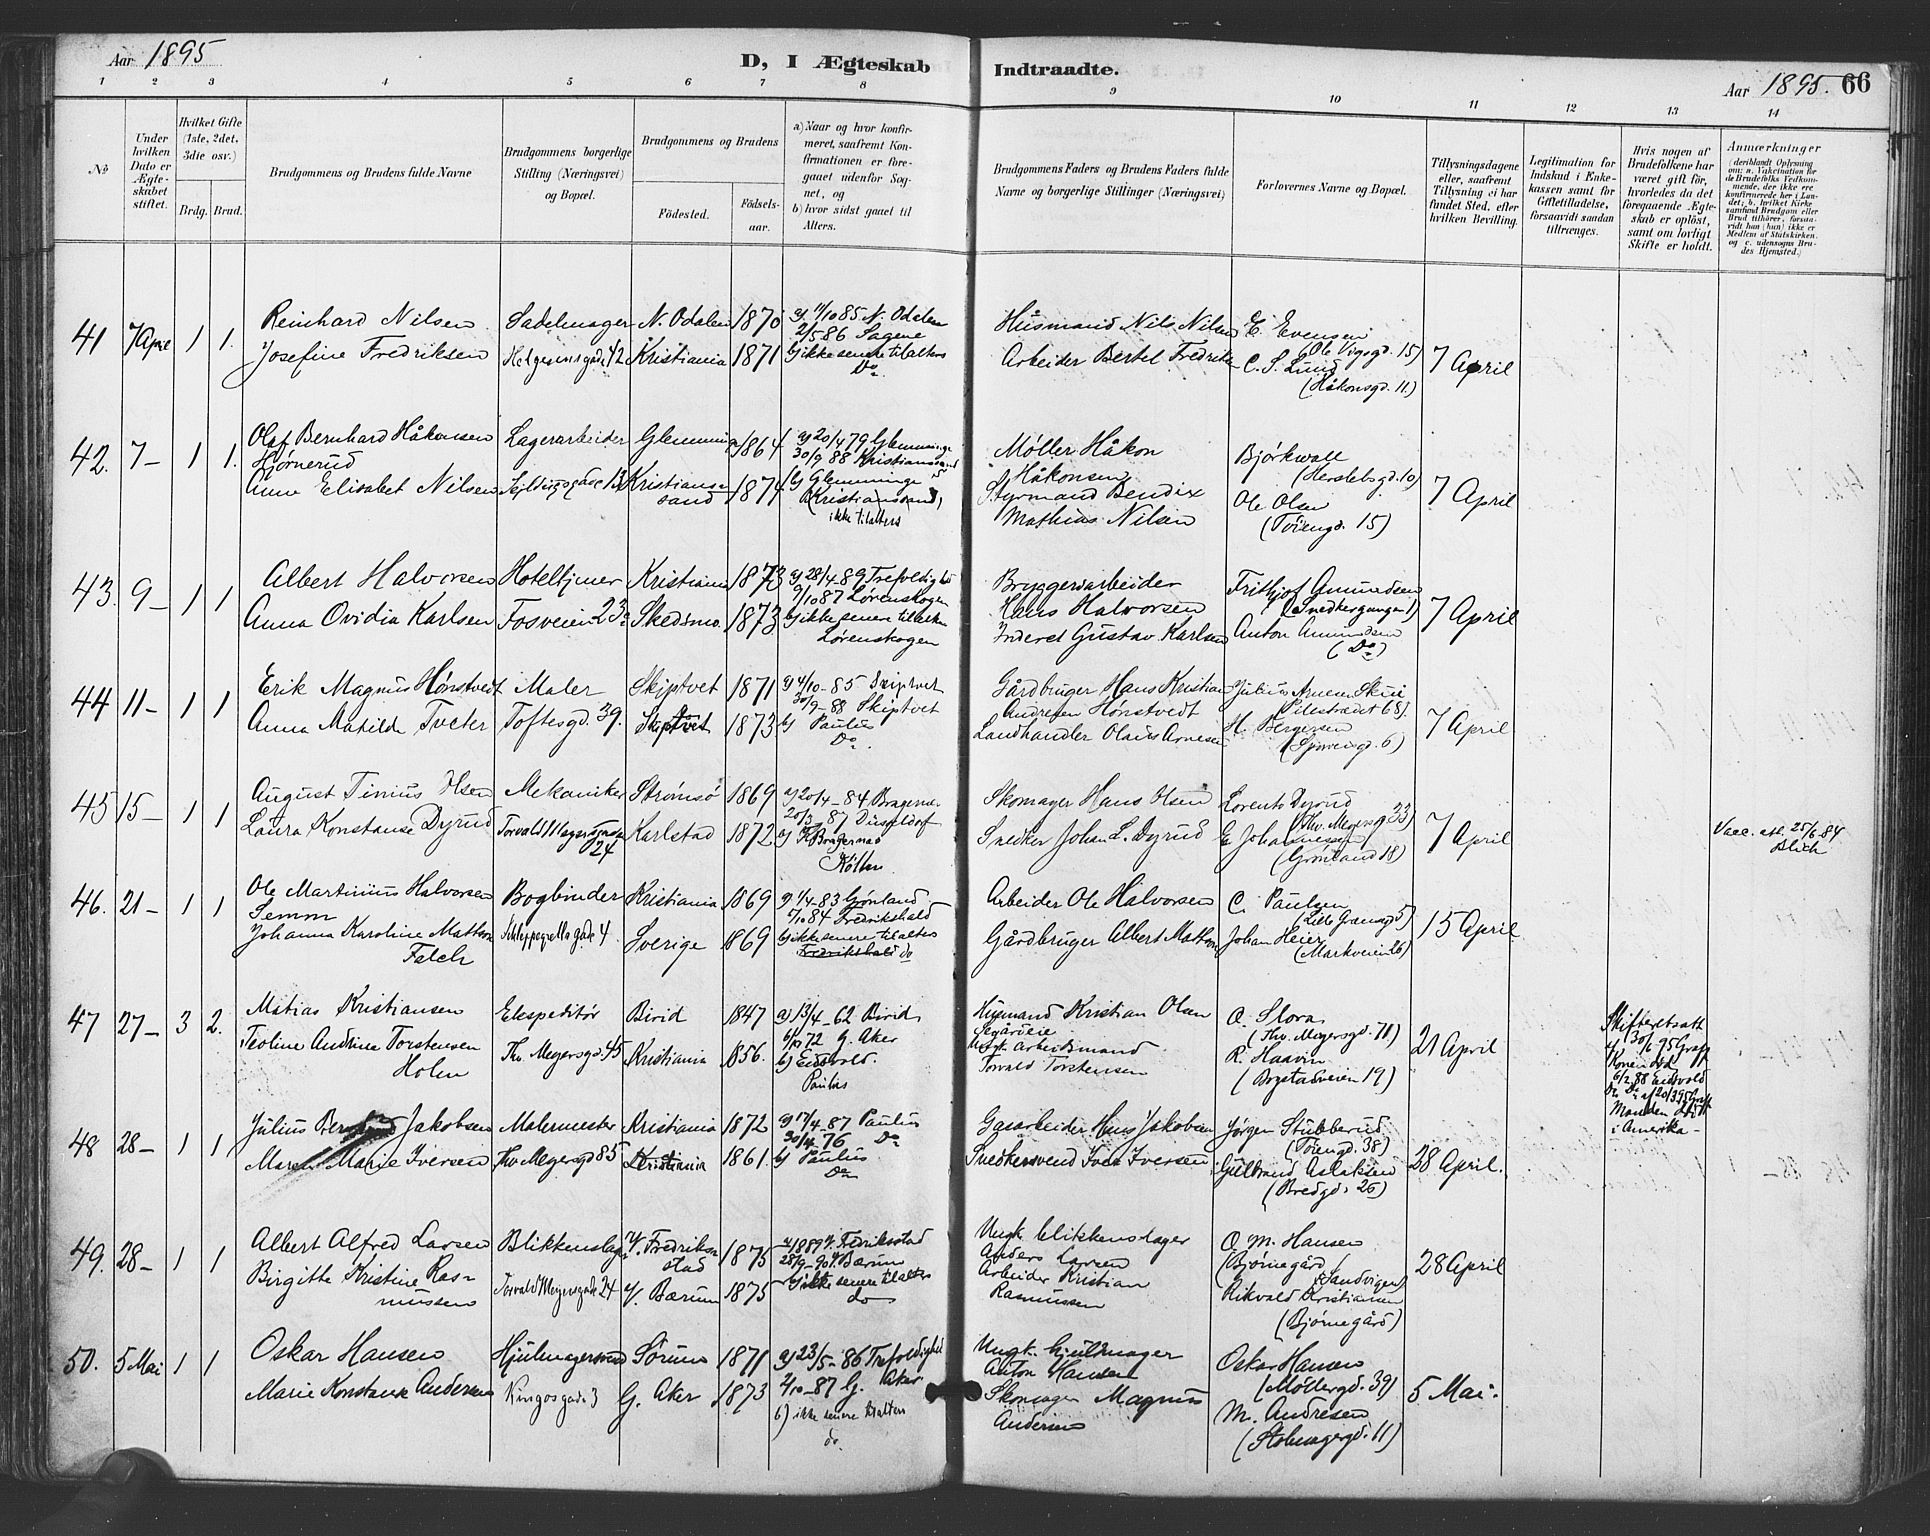 Aar 1895 D, I Ægteskab Indtraadte. Aar 1895. 66
1 2 3 4 5 6 7 8 9 10 11 12 13 14
No.
Under hvilken Dato er Ægteskabet stiftet.
Hvilket Gifte (1ste, 2det, 3die osv.)
Brdg. Brud.
Brudgommens og Brudens fulde Navne
Brudgommens borgerlige Stilling (Næringsvei) og Bopæl.
Brudgommens og Brudens
Fødested. Fødselsaar.
a) Naar og hvor konfirmeret, saafremt Konfirmationen er foregaaet udenfor Sognet, og
b) hvor sidst gaaet til Alters.
Brudgommens Faders og Brudens Faders fulde Navne og borgerlige Stillinger (Næringsvei)
Forlovernes Navne og Bopæl.
Tillysningsdagene eller, saafremt Tillysning ei har fundet Sted, efter hvilken Bevilling.
Legitimation for Indskud i Enkekassen samt for Giftetilladelse, forsaavidt saadan tiltrænges.
Hvis nogen af Brudefolkene har været gift før, hvorledes da det foregaaende Ægteskab er opløst, samt om lovligt Skifte er holdt.
Anmærkninger
(deriblandt Oplysning om: a. Vaccination for de Brudefolks Vedkommende, der ikke ere konfirmerede her i Landet; b. hvilket Kirkesamfund Brudgom eller Brud tilhører, forsaavidt han (hun) ikke er Medlem af Statskirken, og c. udensogns Brudes Hjemsted.)
41 7 Apr 1 1. Reinhard Nilsen Sadelmager N. Odalen 1870 a) 11/10 85 N. Odalen Husmand Nils Nilsen E. Evensen
2/5 86 Sagene (Ole Vigsgd. 15)
Josefine Fredriksen Helgesensgade 42 Kristiania 1871 b) ikke senere tilalters Arbeider Bertel Fredriksen C. S. Lund 7 April
Do (Håkonsgd. 11)
42. 7 - 1 1. Olaf Bernhard Håkonsen Lagerarbeider Glemminge 1864 a) 20/4 79 Glemminge Møller Håkon Bjørkwall
Hjørnerud 30/9 88 Kristianssand Håkonsen (Herslebsgd. 10)
Anne Elisabet Nilsen Seildugsgade 13 Kristianssand 1874 b) Glemminge Styrmand Bendix Ole Olsen 7 April
(Kristianssand) Mathias Nilsen (Tøiengd. 15)
ikke tilalters
43. 9 - 1 1 Albert Halvorsen Hoteltjener Kristiania 1873 a) 28/4 - 89 Trefoldighed Bryggeriarbeider Frithjof Amundsen
9/10 87 Lørenskogen Hans Halvorsen (Snedkergangen 1)
Anna Ovidia Karlsen Fosveien 23 Skedsmo 1873 b) ikke senere tilalters Inderst Gustav Karlsen Anton Amundsen 7 April
Lørenskogen (Do)
44 11 - 1 1 Erik Magnus Hønstvedt Maler Skiptvet 1871 a) 4/10 - 85 Skiptvet Gårdbruger Hans Kristian Julius Arnesen Sküe
30/9 - 88 Skiptvet Andresen Hønstvedt Pilestrædet 68)
Anna Matilde Tveter Toftesgd. 39. Skiptvet 1873 b) Paulus Landhandler Olaus Arnesen H. Bergersen 7 April
Do (Sinsengd. 6)
45 15 - 1 1 August Tinius Olsen Mekaniker Strømsø 1869 a) 20/4 - 84 Bragernæs Skomager Hans Olsen Lorents Dyrud
20/3 - 87 Düsseldorf (Thv. Meyersg 33)
Laura Konstanse Dyrud Torvald Meyersgade 24 Karlstad 1872 b) Bragernæs Snecker Johan L. Dyrud E. Johannessen 7 April Vacc. att. 25/6 84
Köln (Grønland 18) Blich
46. 21 - 1 1 Ole Martinius Halvorsen Bogbinder Kristiania 1869 a) 1/4 - 83 Grønland Arbeider Ole Halvorsen C. Paulsen
Semm 5/10 84 Fredrikshald (Lille Grænsegd 5)
Johanna Karoline Mattson Schleppegrellsgade 4. Sverige 1869 b) ikke senere tilalters Gårdbruger Albert Mattson Johan Heier 15 April
Falch Fredrikshald do (Markveien 26)
47 27 - 3 2. Matias Kristiansen Ekspeditør Birid 1847 a) 13/4 - 62 Birid Husmand Kristian Olsen A. Flora Skifteretsatt
72 G. Aker Segårdeie (Thv. Meyersgd. 71) 30/6 95
Teoline Andrina Torstensen Thv. Meyersgd. 45 Kristiania 1856. b) Eidsvold arbeidsmand R. Haavin 21 April Konen død
Holm Paulus Torvald Torstensen (Bogstadveien 19) 6/2 88 Eidsvold
Manden død
i Amerika -
48 28 - 1 1 Julius Jakobsen Malermester Kristiania 1872 a) 17/4 - 87 Paulus Gasarbeider Hans Jakobsen Jørgen Stubberud
30/4 76 Do (Tøiengd. 38)
Maren Marie Iversen Thv Meyersgd 85 Kristiania 1861. b) Paulus Snedkersvend Iver Iversen Gulbrand Aslaksen 28 April.
Do (Bredgd. 26)
49. 28 - 1 1 Albert Alfred Larsen Blikkenslager V. Fredrikstad 1875 89 V. Fredriksstad Ungk. blikkenslager O. M. Hansen
28/9 - 90 V. Bærum Anders Larsen (Bjørnegård
Birgitte Kristine Rasmussen Torvald Meyersgade 24 V. Bærum 1875 b) ikke senere tilalters Arbeider Kristian Sandvigen) 28 April
do Rasmussen Rikvald Kristiansen
(Bjørnegård)
50. 5 Mai 1 1 Oskar Hansen Hjulmagersvend Sørum 1871 a) 23/5 - 86 Trefoldighed Ungk. hjulmager Oskar Hansen
2/10 - 87 G. Aker Anton Hansen (Møllergd. 39)
Marie Konstanse Andersen Kingosgade 3 G. Aker 1873 b) ikke senere tilalters Skomager Magnus M. Andresen 5 Mai.
do. Andersen (Stolmagergd. 11)